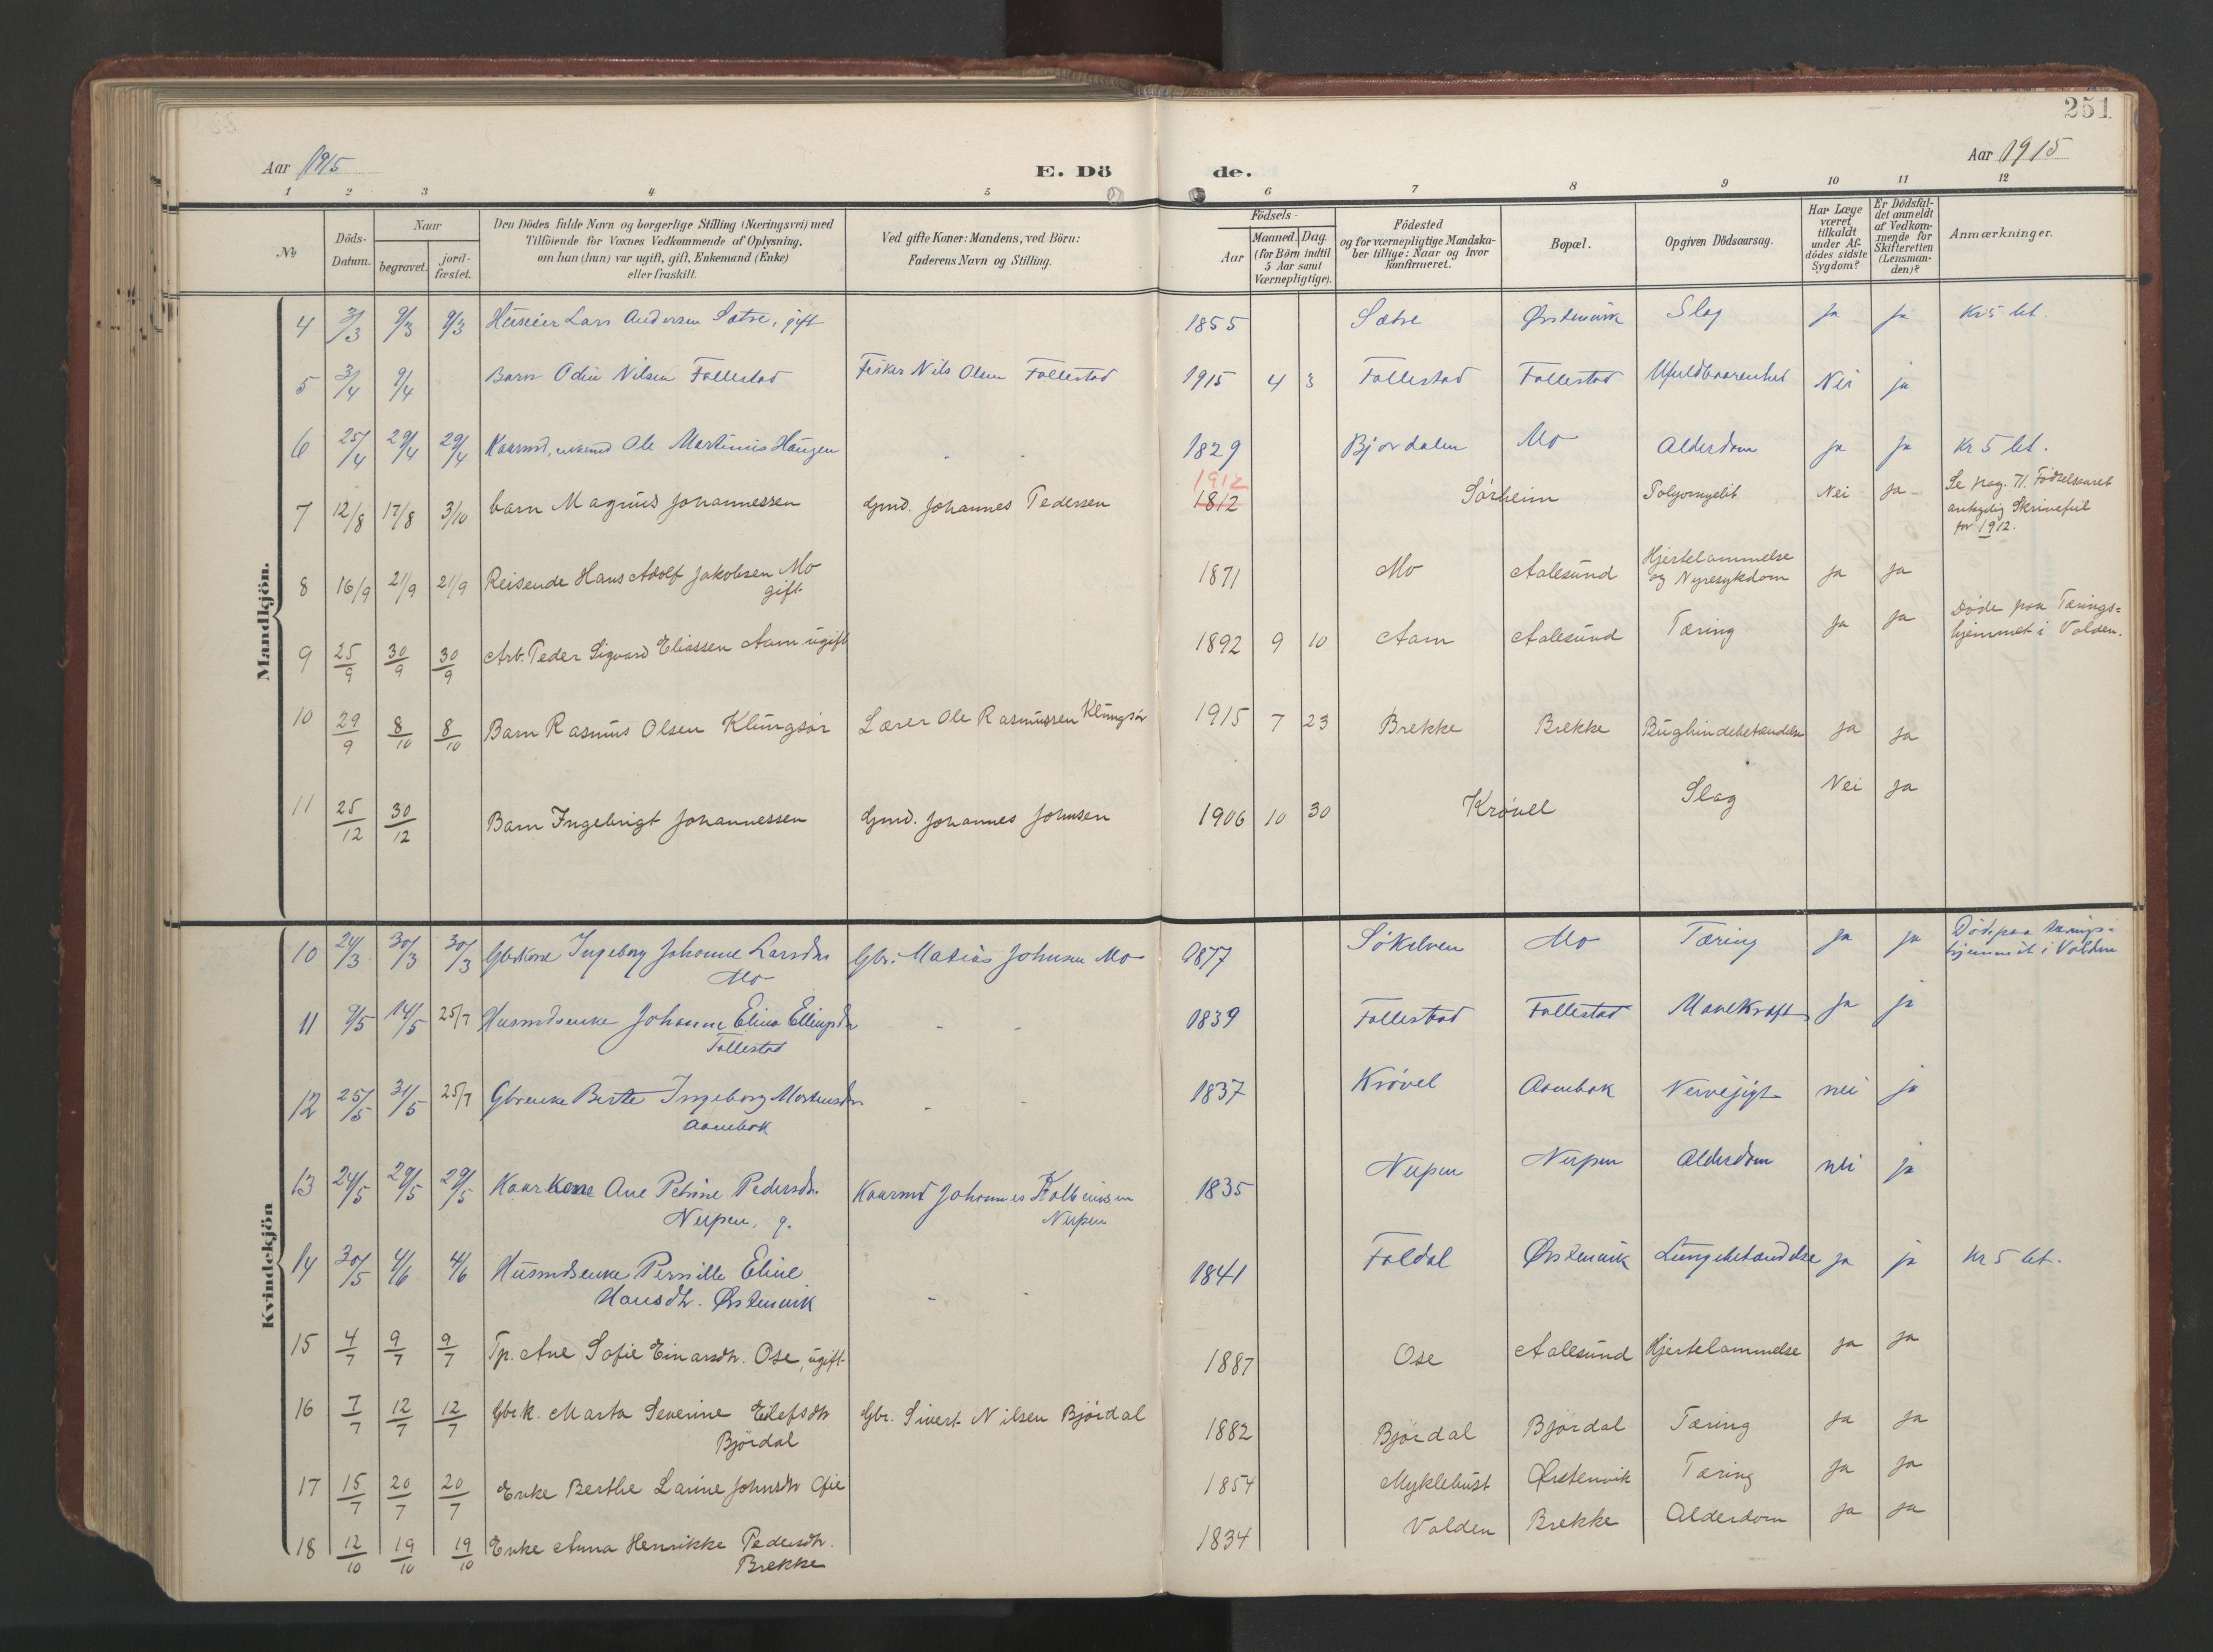 251
Aar 1915
E. Dö
de.
Aar 1915
1 2 3 4 5 6 7 8 9 10 11 12
No
Döds-Datum.
Naar
begravet.
jord-fæstet.
Den Dödes fulde Navn og borgerlige Stilling (Næringsvei) med
Tilföiende for Voxnes Vedkommende af Oplysning,
om han (hun) var ugift, gift, Enkemand (Enke)
eller fraskilt.
Ved gifte Koner: Mandens, ved Börn:
Faderens Navn og Stilling.
Födsels-
Aar
Maaned. Dag.
(for Börn indtil
5 Aar samt
Værnepligtige).
Födested
og for værnepligtige Mandska-
ber tillige: Naar og hvor
konfirmeret.
Bopæl.
Opgiven Dödsaarsag.
Har Læge
været
tilkaldt
under Af-
dödes sidste
Sygdom?
Er Dödsfal-
det anmeldt
af Vedkom-
mende for
Skifteretten
(Lensman-
den)?
Anmærkninger.
Mandkjön.
4 3/3 9/3 9/3 Huseier Lars Andersen Sætre, gift 1855 Sætre Ørstenvik Slag ja ja Kr 5 bet.
5 3/4 9/4 Barn Odin Nilsen Follestad Fisker Nils Olsen Follestad 1915 4 3 Follestad Follestad Ufuldbaarenhet Nei ja
6 25/4 29/4 29/4 Kaarmd, enkemd Ole Martinus Haugen - - 1829 Bjordalen Mo Alderdom ja ja Kr 5 bet.
7 12/8 17/8 3/10 barn Magnus Johannessen Gmd. Johannes Pedersen 1912 1812 Sørheim Polyomyelit Nei ja Se pag. 71. Fødselsaaret
antagelig Skrivefeil
for 1912.
8 16/9 21/9 21/9 Reisende Hans Adolf Jakobsen Mo
gift 1871 Mo Aalesund Hjertelammelse
og Nyresykdom ja ja
9 25/9 30/9 30/9 Arb. Peder Sigvard Eliassen Aam ugift 1892 9 10 Aam Aalesund Tæring ja ja Døde paa Tærings-
hjemmet i Volden.
10 29/9 8/10 8/10 Barn Rasmus Olsen Klungsør Lærer Ole Rasmussen Klungsør 1915 7 23 Brekke Brekke Bughindebetændelse ja ja
11 25/12 30/12 Barn Ingebrigt Johannessen Gmd. Johannes Johnsen 1906 10 30 Krøvel Slag Nei ja
Kvindekjön
10 24/3 30/3 30/3 Gbrkone Ingeborg Johanne Larsdtr
Mo Gbr. Matias Johnsen Mo 1877 Søkelven Mo Tæring ja ja Døde paa tærings-
hjemmet i Volden
11 9/5 14/5 25/7 Husmdsenke Johanne Elina Ellingsdtr
Follestad - - 1839 Follestad Follestad Mavekræft ja ja
12 25/5 31/5 25/7 Gbrenke Berte Ingeborg Mortensdtr
Aambak - - 1837 Krøvel Aambak Nervegigt nei ja
13 24/5 29/5 29/5 Kaarkone Ane Petrine Pedersdtr.
Nupen, g. Kaarmd Johannes Kolbeinsen
Nupen 1835 Nupen Nupen Alderdom nei ja
14 30/5 4/6 4/6 Husmdsenke Pernille Eline
Hansdtr. Ørstenvik - - 1841 Foldal Ørstenvik Lungebetændelse ja ja Kr 5 bet.
15 4/7 9/7 9/7 Tp. Ane Sofie Einarsdtr. Ose, ugift 1887 Ose Aalesund Hjertelammelse ja ja
16 7/7 12/7 12/7 Gbr.k. Marta Severine Eilefsdtr
Bjørdal Gbr. Sivert Nilsen Bjørdal 1882 Bjørdal Bjørdal Tæring ja ja
17 15/7 20/7 20/7 Enke Berthe Larine Johnsdtr 1854 Myklebust Ørstenvik Tæring ja ja
18 12/10 19/10 19/10 Enke Anna Henrikke Pedersdtr.
Brekke 1834 Volden Brekke Alderdom ja ja